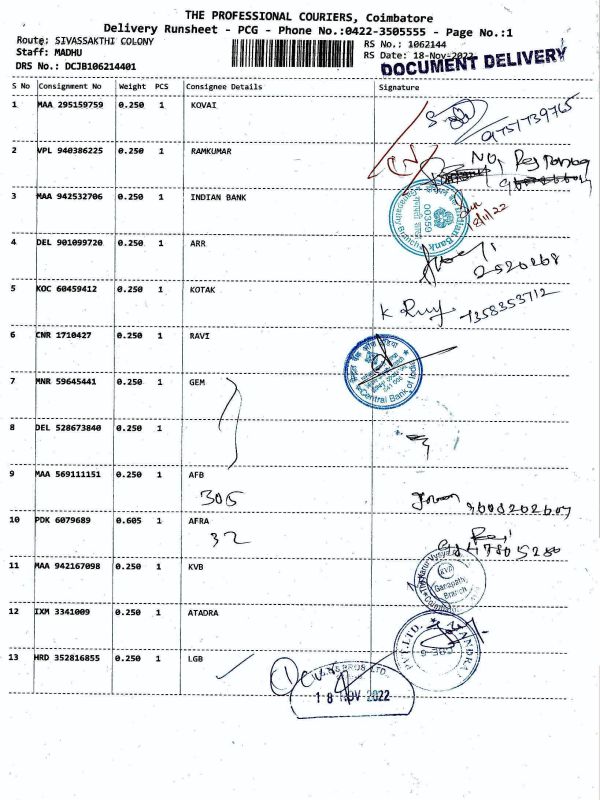 THE PROFESSIONAL COURIERS, Coimbatore
Delivery Runsheet - PCG - Phone No.:0422-3505555 - Page No.:1
Route: SIVASSAKTHI COLONY
Staff: MADHU
DRS No.: DCJB106214401
RS No.: 1062144
RS Date: 18-Nov-2022
DOCUMENT DELIVERY
S No Consignment No Weight PCS Consignee Details Signature
1 MAA 295159759 0.250 1 KOVAI
9751739765
2 VPL 940386225 0.250 1 RAMKUMAR
NO,
3 MAA 942532706 0.250 1 INDIAN BANK
Indian Bank
Ganapathy Branch
00350
18/11/22
4 DEL 901099720 0.250 1 ARR
2520268
5 KOC 60459412 0.250 1 KOTAK
7358353712
6 CNR 1710427 0.250 1 RAVI
Central Bank of
7 MNR 59645441 0.250 1 GEM
8 DEL 528673840 0.250 1
9 MAA 569111151 0.250 1 AFB
306
10 PDK 6079689 0.605 1 AFRA
32
11 MAA 942167098 0.250 1 KVB
KVB
Ganapathy
Branch
12 IXM 3341009 0.250 1 ATADRA
PVT.LTD.
13 HRD 352816855 0.250 1 LGB
18 NOV 2022